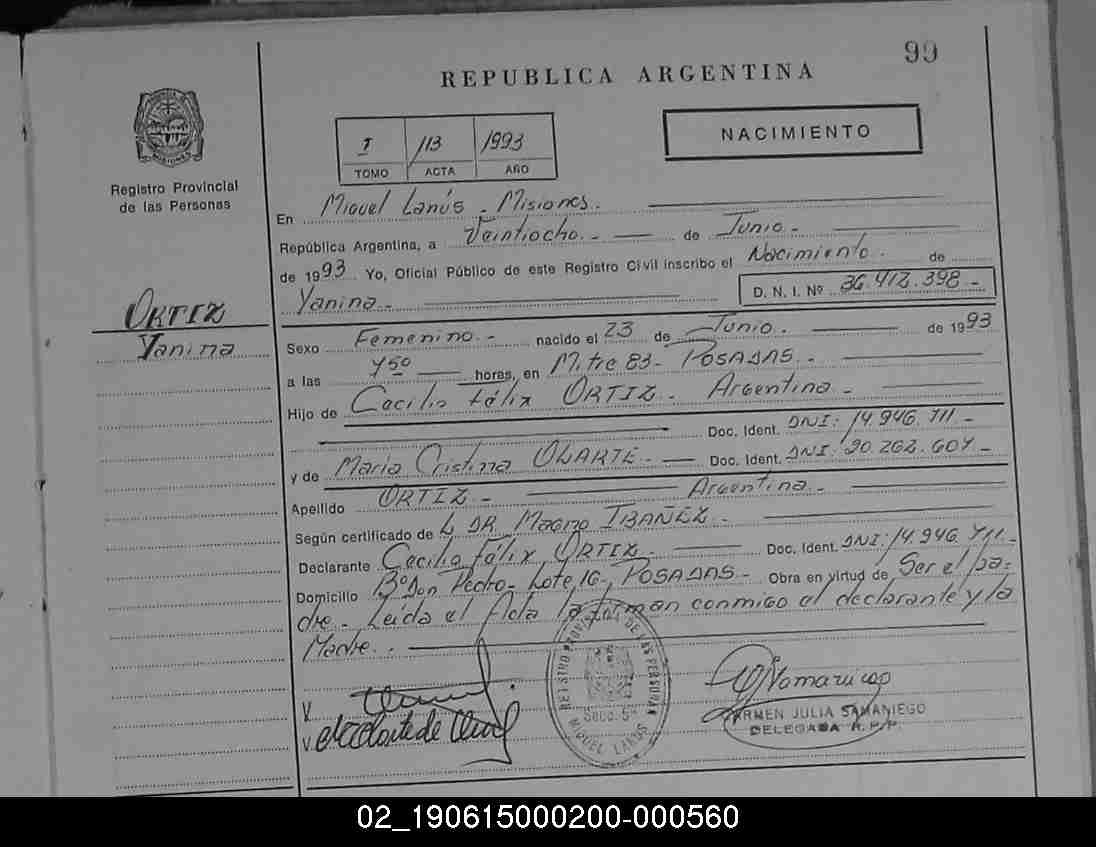 99
REPUBLICA ARGENTINA
I 113 1993
TOMO ACTA AÑO
NACIMIENTO
Registro Provincial
de las Personas
En Miguel Lanús - Misiones.
República Argentina, a Veintiocho.- de Junio.-
de 1993 Yo, Oficial Público de este Registro Civil inscribo el Nacimiento. de
Yanina.- D. N. I. Nº 36.412.398.-
ORTIZ
Yanina
Sexo Femenino.- nacido el 23 de Junio. de 1993
a las horas, en Mitre 83- POSADAS.-
Hijo de Cecilio Félix ORTIZ. Argentino.-
Doc. Ident. DNI: 14.946.711.-
y de María Cristina OLARTE.- Doc. Ident. DNI: 20.262.604.-
Apellido ORTIZ.- Argentina.-
Según certificado de L DR. Magno IBAÑEZ.-
Declarante Cecilio Félix ORTIZ. Doc. Ident. DNI: 14.946.711.-
Domicilio Bº Don Pedro- Lote 16, POSADAS- Obra en virtud de Ser el pa-
dre.- Leída el Acta la firman conmigo el declarante y la
Madre.
REGISTRO PROVINCIAL DE LAS PERSONAS
MIGUEL LANUS
CARMEN JULIA SAMANIEGO
DELEGADA R.P.P.
02_190615000200-000560